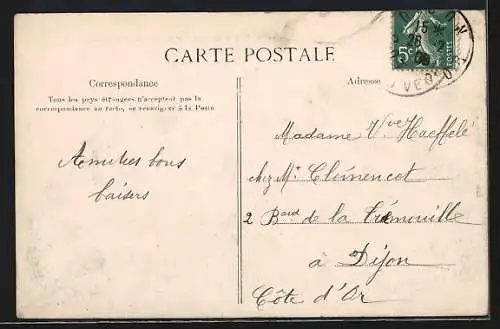 CARTE POSTALE
Correspondance
Tous les pays étrangers n'acceptent pas la
correspondance au recto, se renseigner à la Poste
Adresse
5c
POSTES
Amitiés bons
baisers
Madame Vve Haeffelé
chez Mr Clémencet
2 Bard de la Trémouille
à Dijon
Côte d'Or